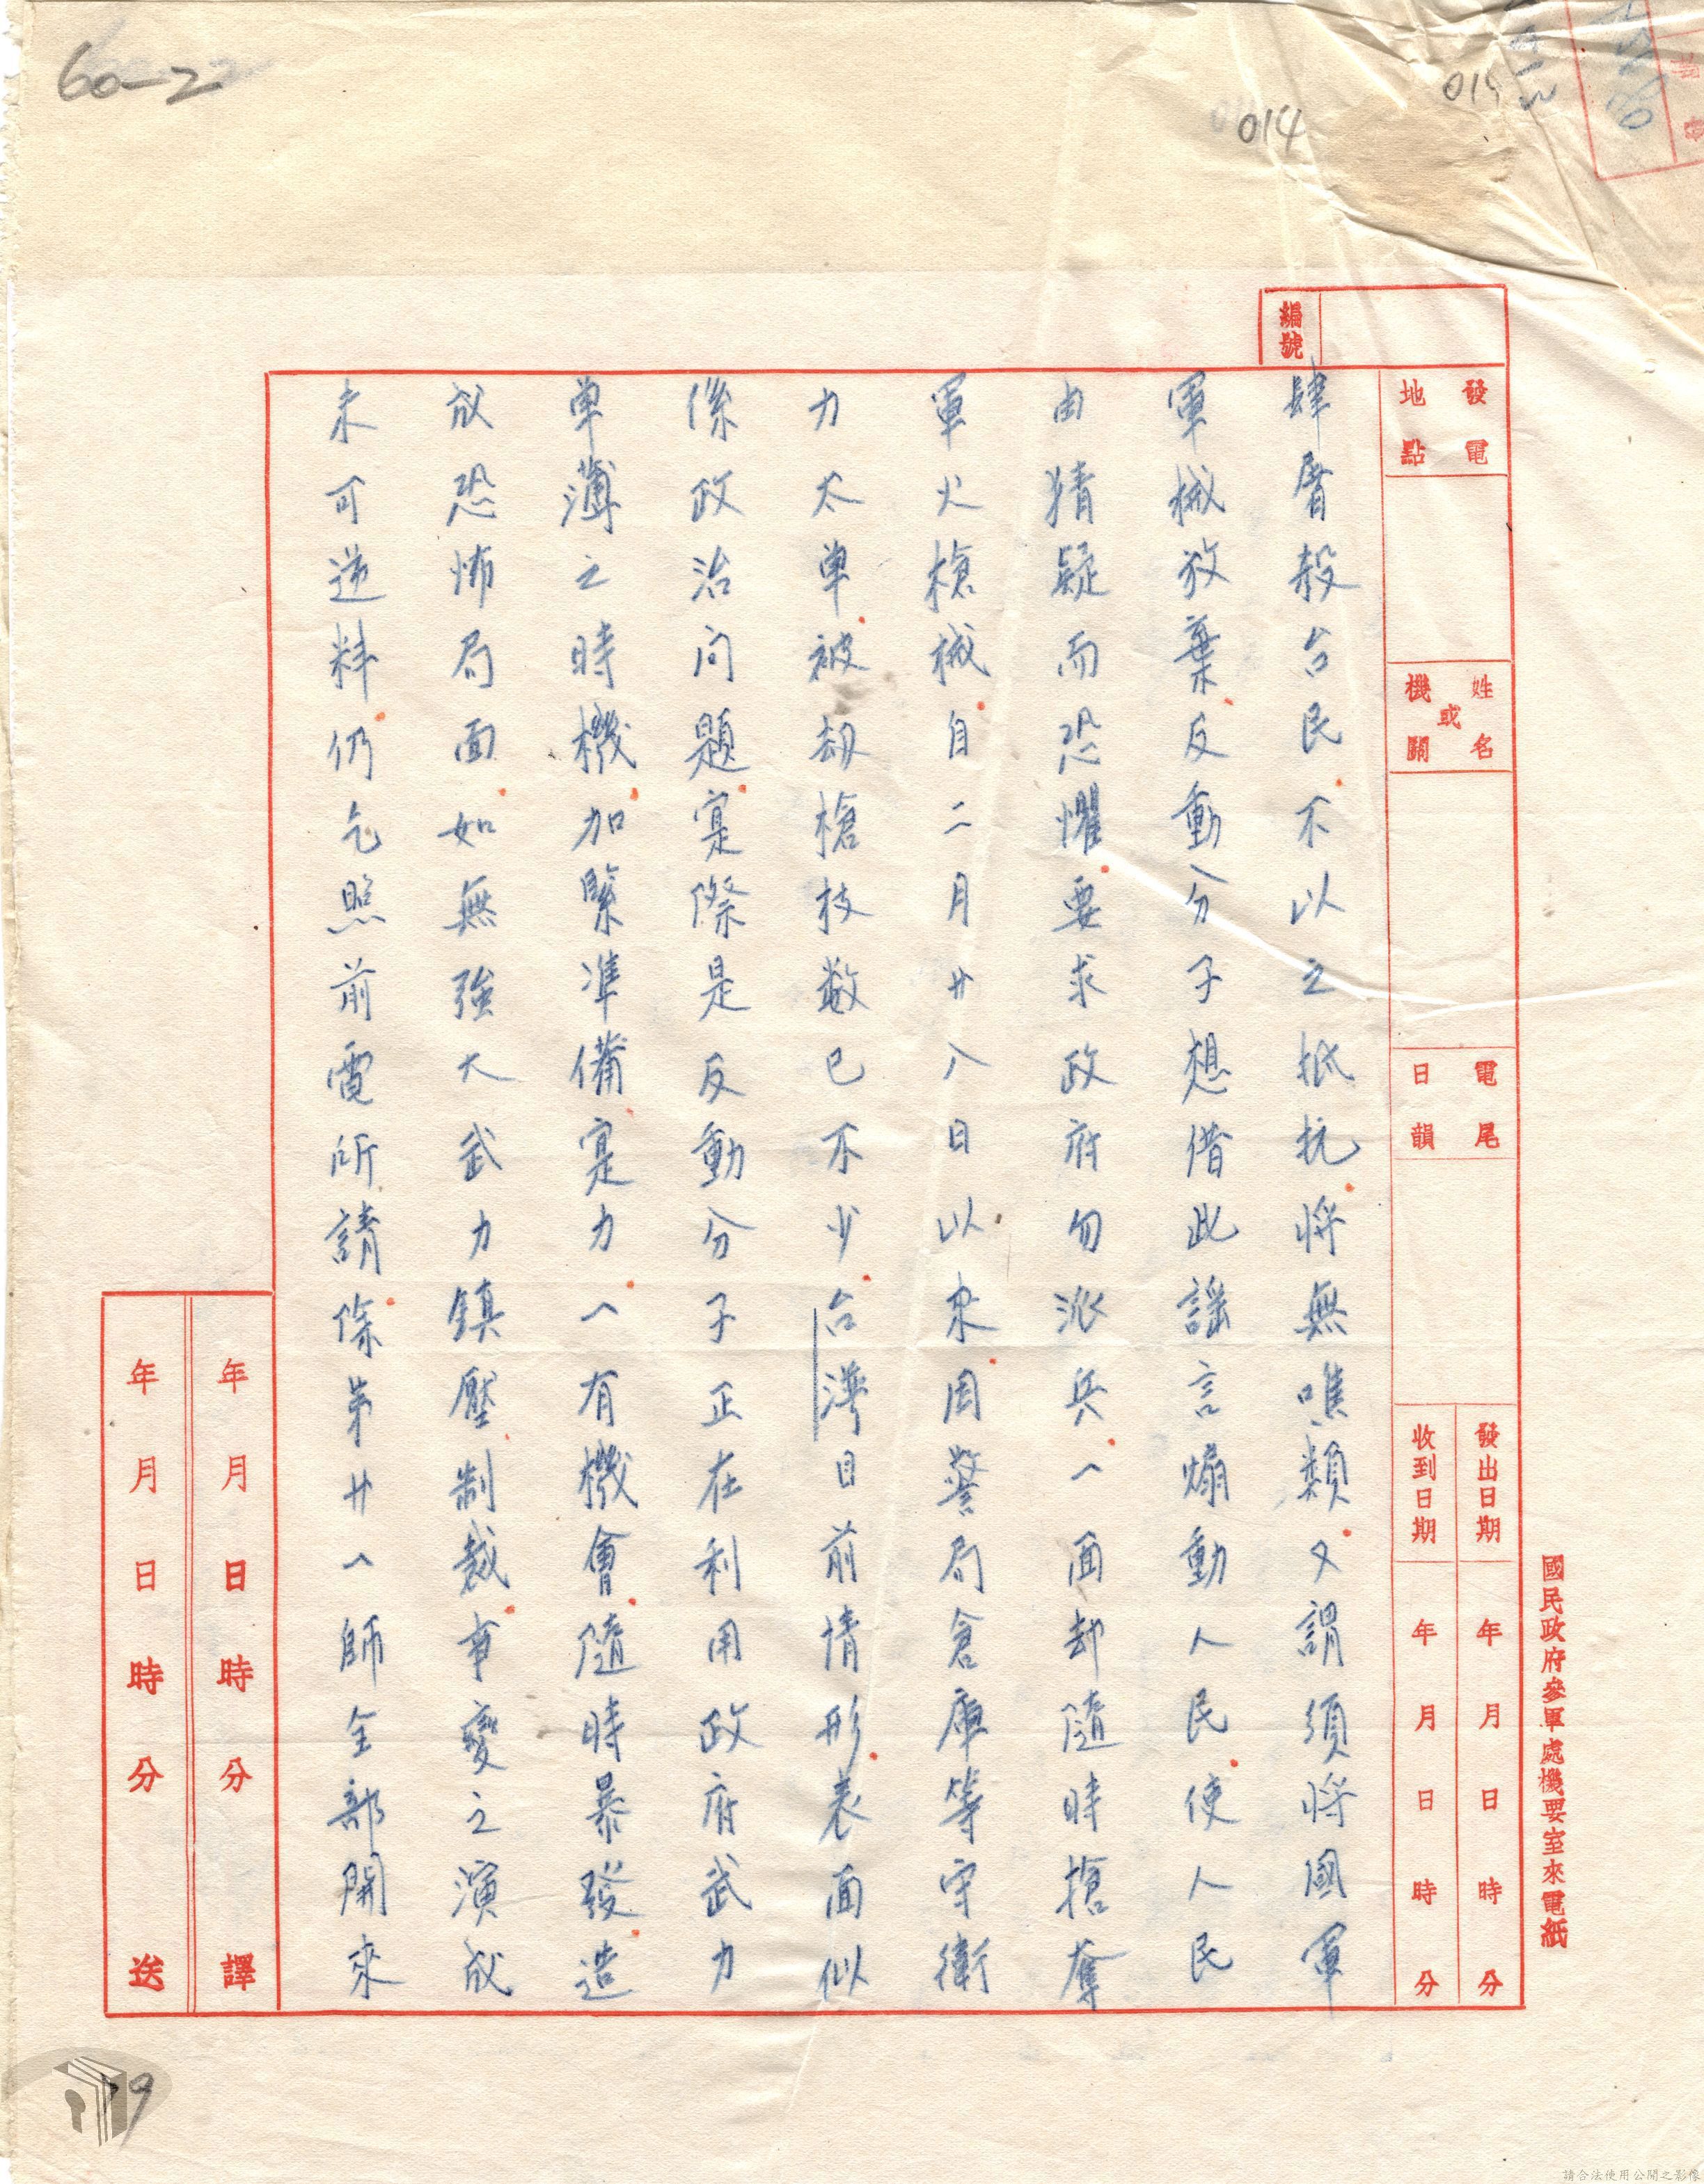 60-2
014
015
編號
發電地點
姓名或機關
電尾日韻
發出日期 年 月 日 時 分
收到日期 年 月 日 時 分
國民政府參軍處機要室來電紙
肆屠殺台民不以之抵抗將無噍類又謂須將國軍
軍械放棄反動分子想借此謠言煽動人民使人民
由猜疑而恐懼要求政府勿派兵一面却隨時搶奪
軍火槍械自二月廿八日以來因警局倉庫等守衛
力太單被刼槍枝數已不少台灣目前情形表面似
係政治问題寔際是反動分子正在利用政府武力
单薄之時機加緊準備寔力一有機會隨時暴發造
成恐怖局面如無強大武力鎮壓制裁事變之演成
未可逆料仍乞照前電所請除第廿一師全部開來
年 月 日 時 分 譯
年 月 日 時 分 送
19
請合法使用公開之影像